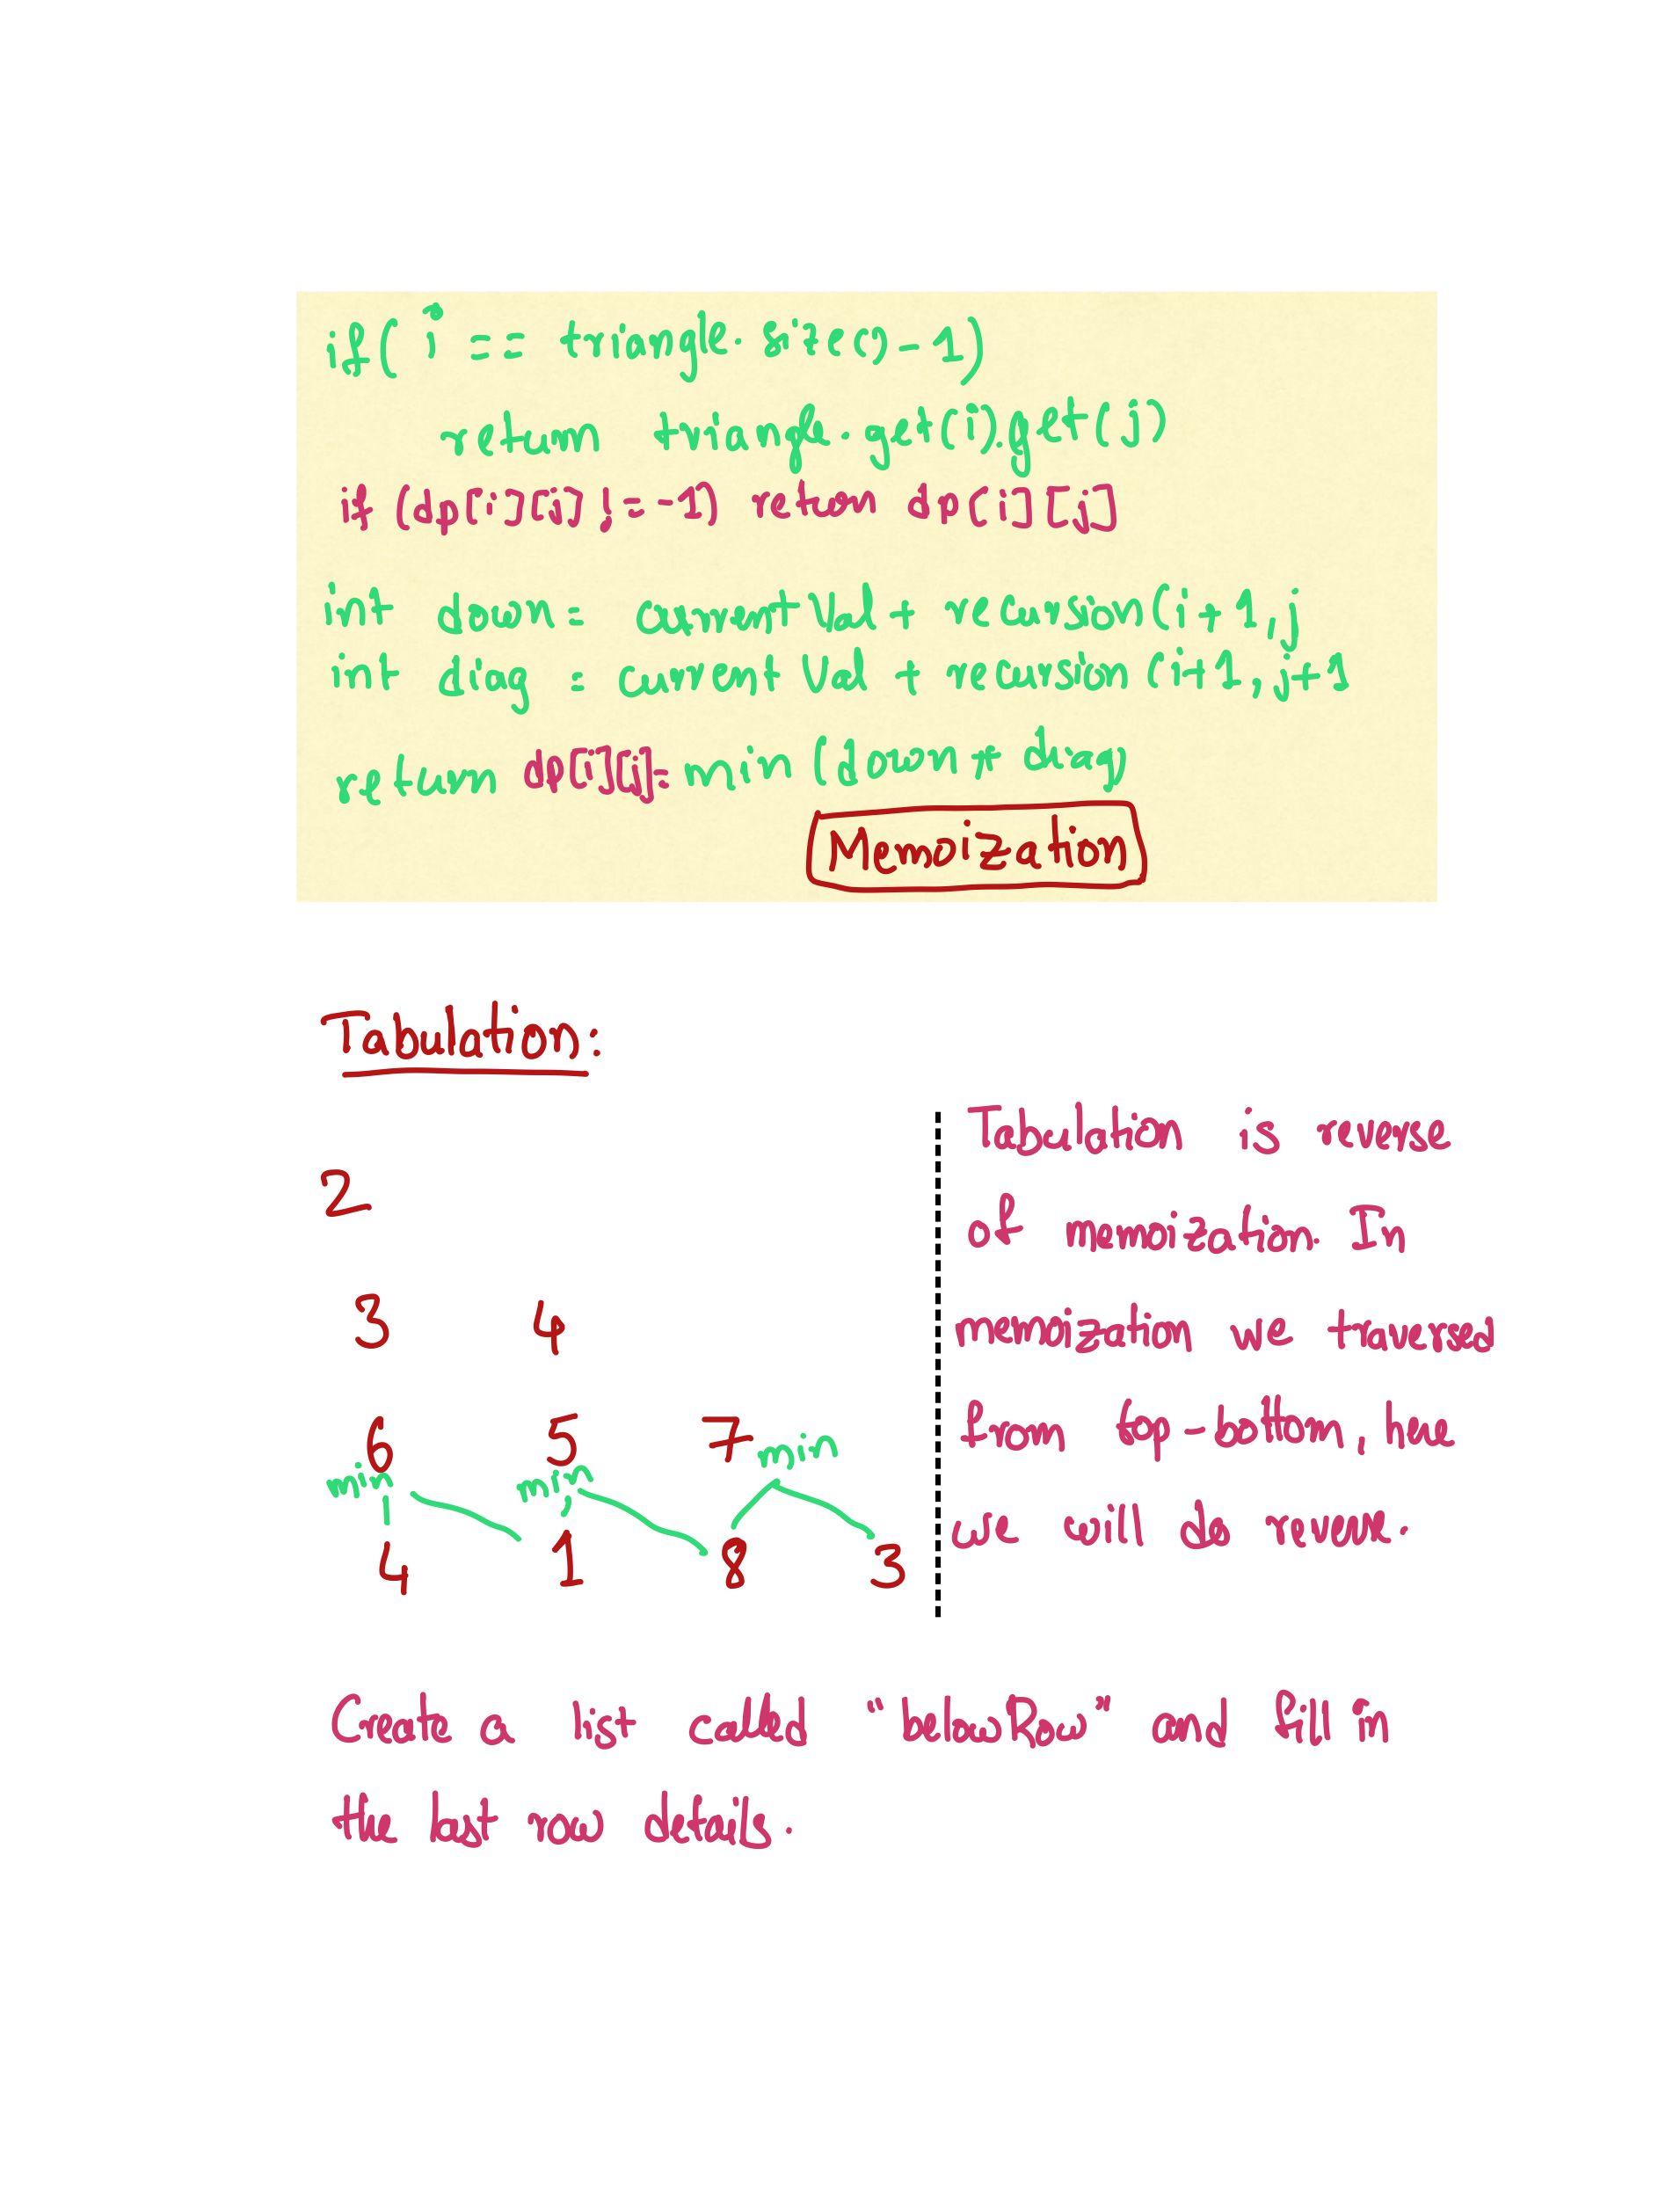 if( i == triangle.size()-1)
return triangle.get(i).get(j)
if (dp[i][j] != -1) return dp[i][j]
int down = currentVal + recursion(i+1,j
int diag = currentVal + recursion(i+1,j+1
return dp[i][j]= min(down, diag)
Memoization
Tabulation:
2
3 4
6 5 7
min min min
4 1 8 3
Tabulation is reverse
of memoization. In
memoization we traversed
from top-bottom, here
we will do reverse.
Create a list called "belowRow" and fill in
the last row details.